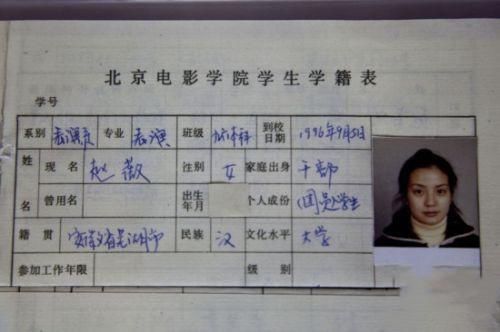 北京电影学院学生学籍表
学号
系别 表演系 专业 表演 班级 本科 到校日期 1996年9月
姓名 现名 赵薇 性别 女 家庭出身 干部
曾用名 出生年月 个人成份 学生
籍贯 安徽省芜湖市 民族 汉 文化水平 大学
参加工作年限 级别